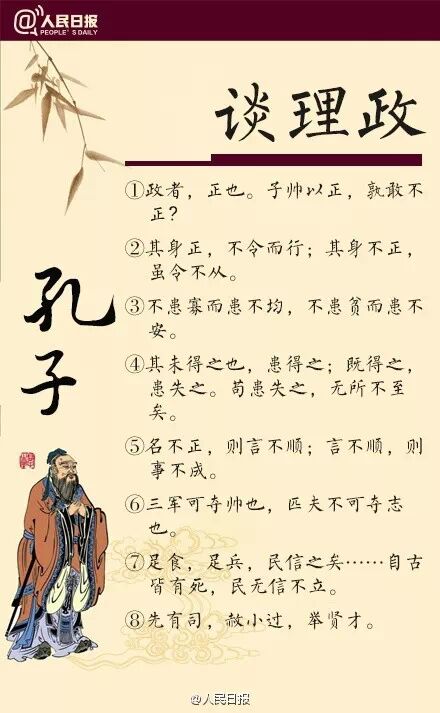 @人民日报
PEOPLE'S DAILY
谈理政
孔子
①政者，正也。子帅以正，孰敢不
正？
②其身正，不令而行；其身不正，
虽令不从。
③不患寡而患不均，不患贫而患不
安。
④其未得之也，患得之；既得之，
患失之。苟患失之，无所不至
矣。
⑤名不正，则言不顺；言不顺，则
事不成。
⑥三军可夺帅也，匹夫不可夺志
也。
⑦足食，足兵，民信之矣……自古
皆有死，民无信不立。
⑧先有司，赦小过，举贤才。
@人民日报